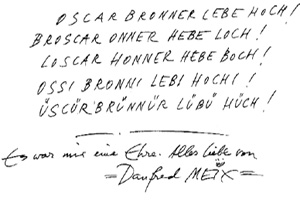 OSCAR BRONNER LEBE HOCH!
BROSCAR ONNER HEBE LOCH!
LOSCAR HONNER HEBE BOCH!
OSSI BRONNI LEBI HOCHI!
ÜSCÜR BRÜNNÜR LÜBÜ HÜCH!
Es war mir eine Ehre. Alles liebe von
=Danfred MEIX=